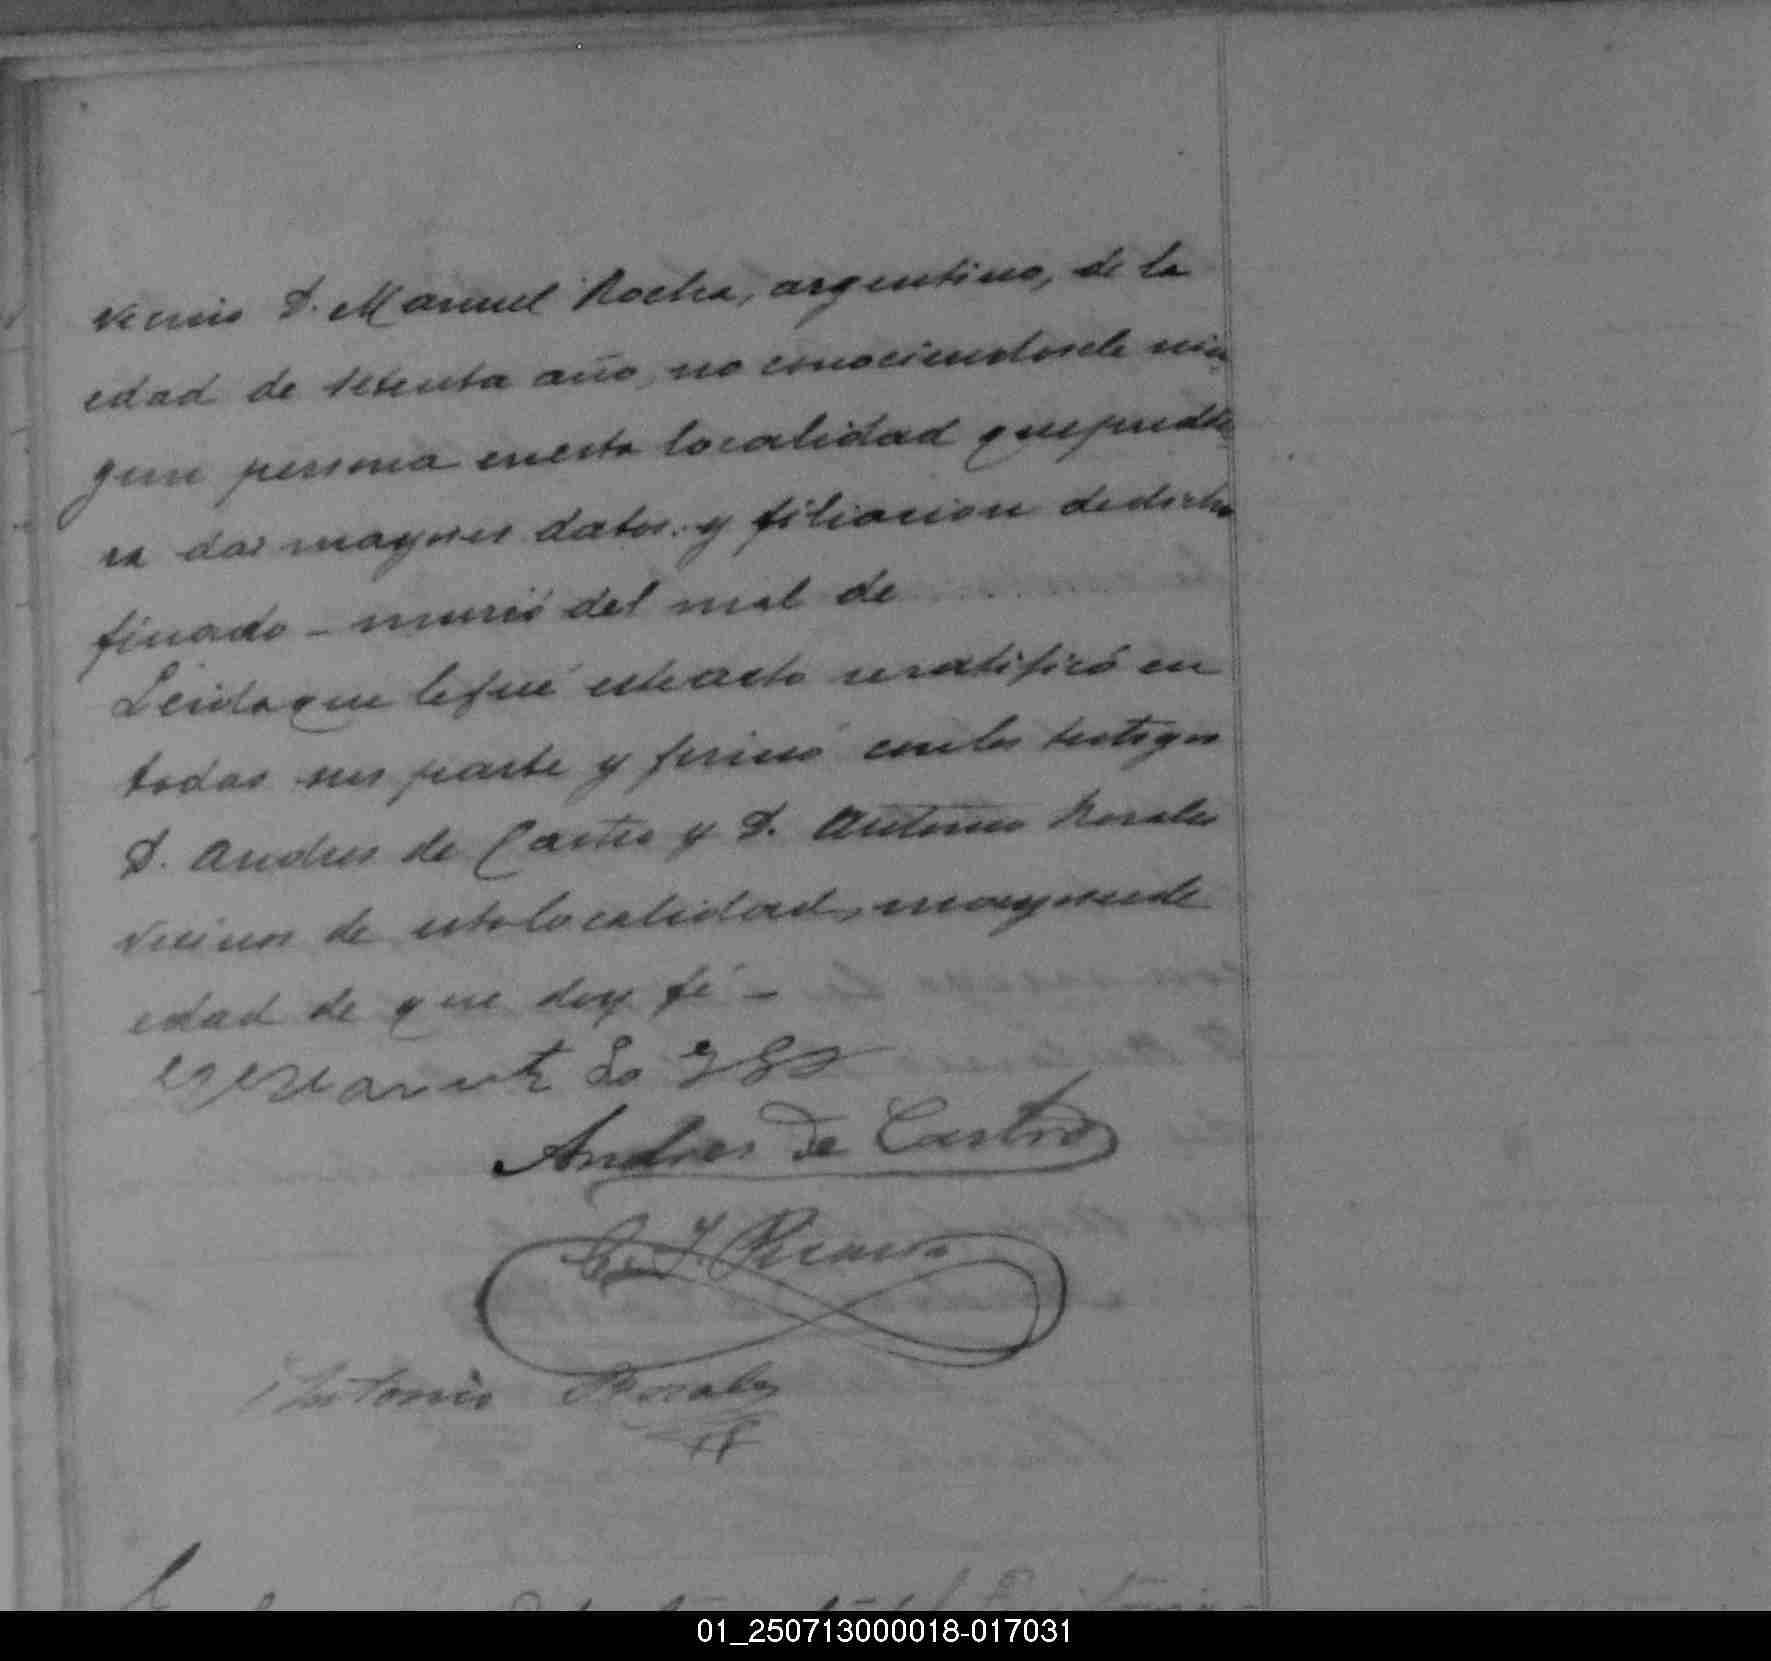 vecino D. Manuel Rocha, argentino, de la
edad de setenta año, no conociendosele nin
gun persona en esta localidad que pudie
ra dar mayores datos y filiacion de dicho
finado - murió del mal de . . . . .
Leida que le fué este acta se ratificó en
todas sus parte y firmó con los testigos
D. Andres de Castro y D. Antonio Rosales
vecinos de esta localidad, mayores de
edad de que doy fé -
Andres de Castro
Antonio Rosales
01_250713000018-017031